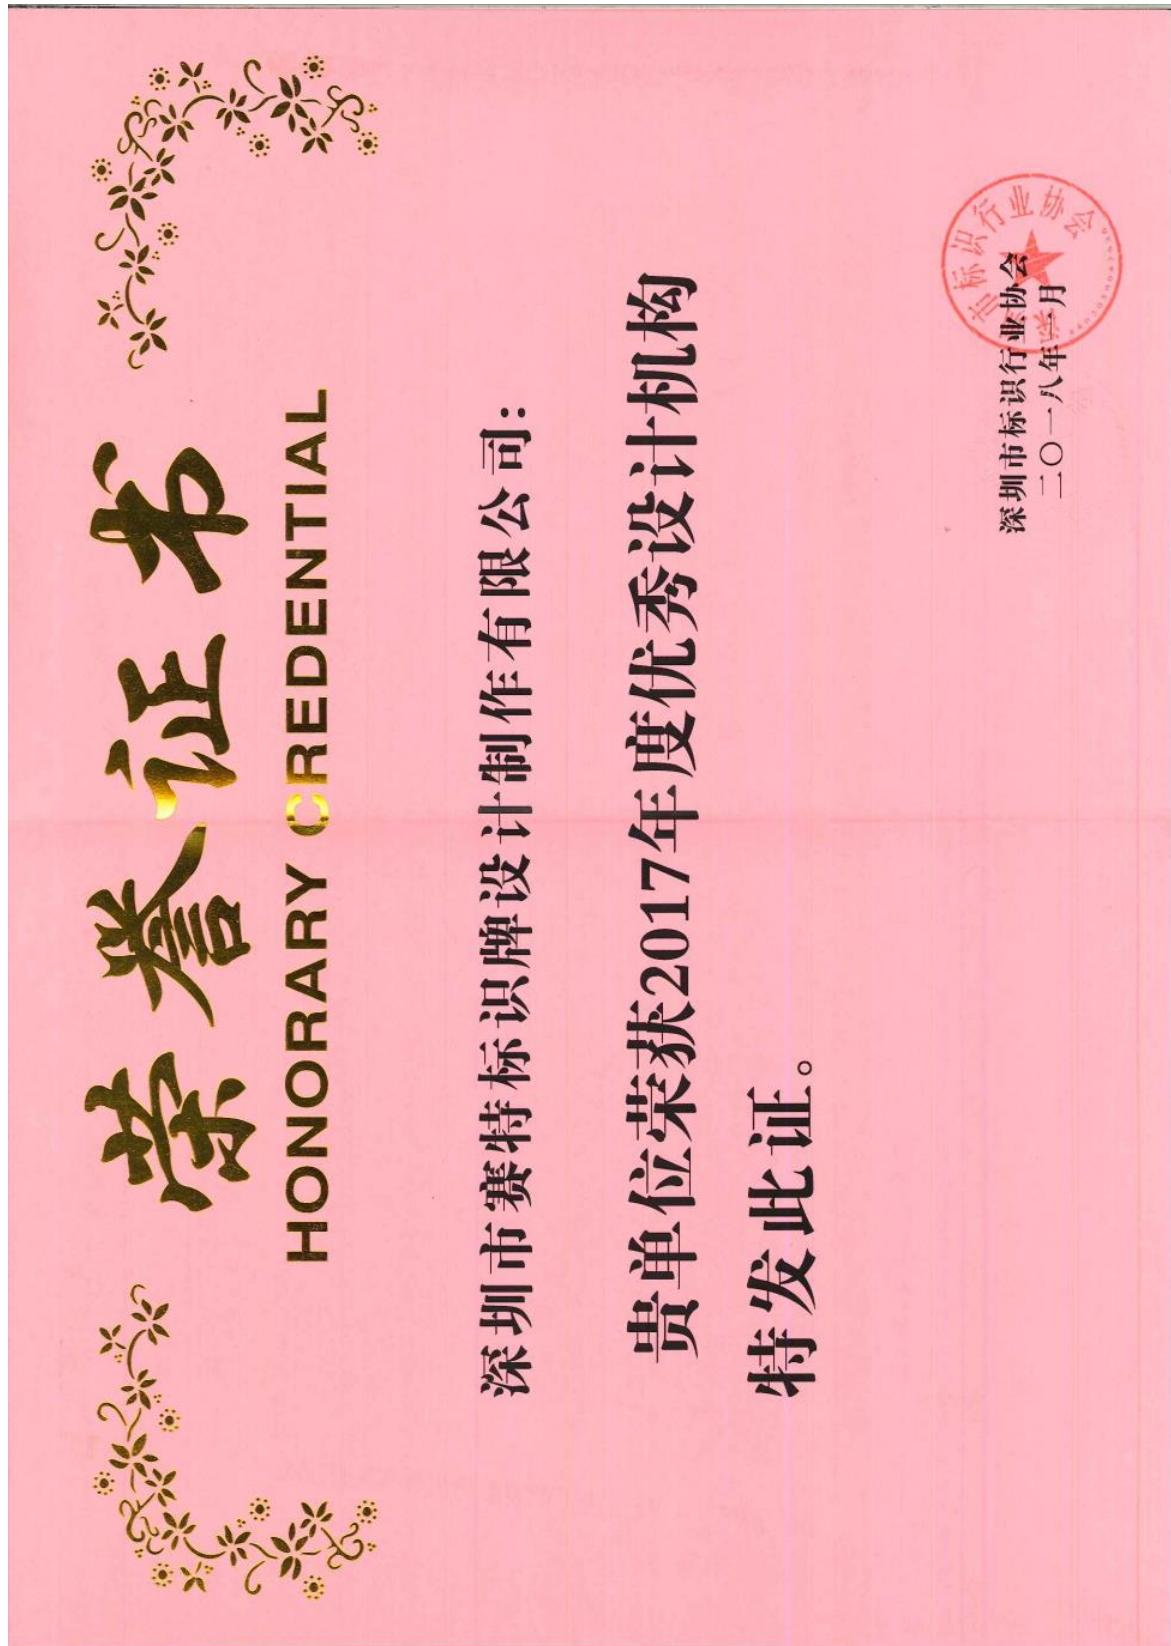 荣誉证书
HONORARY CREDENTIAL
深圳市赛特标识牌设计制作有限公司:
贵单位荣获2017年度优秀设计机构
特发此证。
深圳市标识行业协会
二〇一八年 月
深圳市标识行业协会